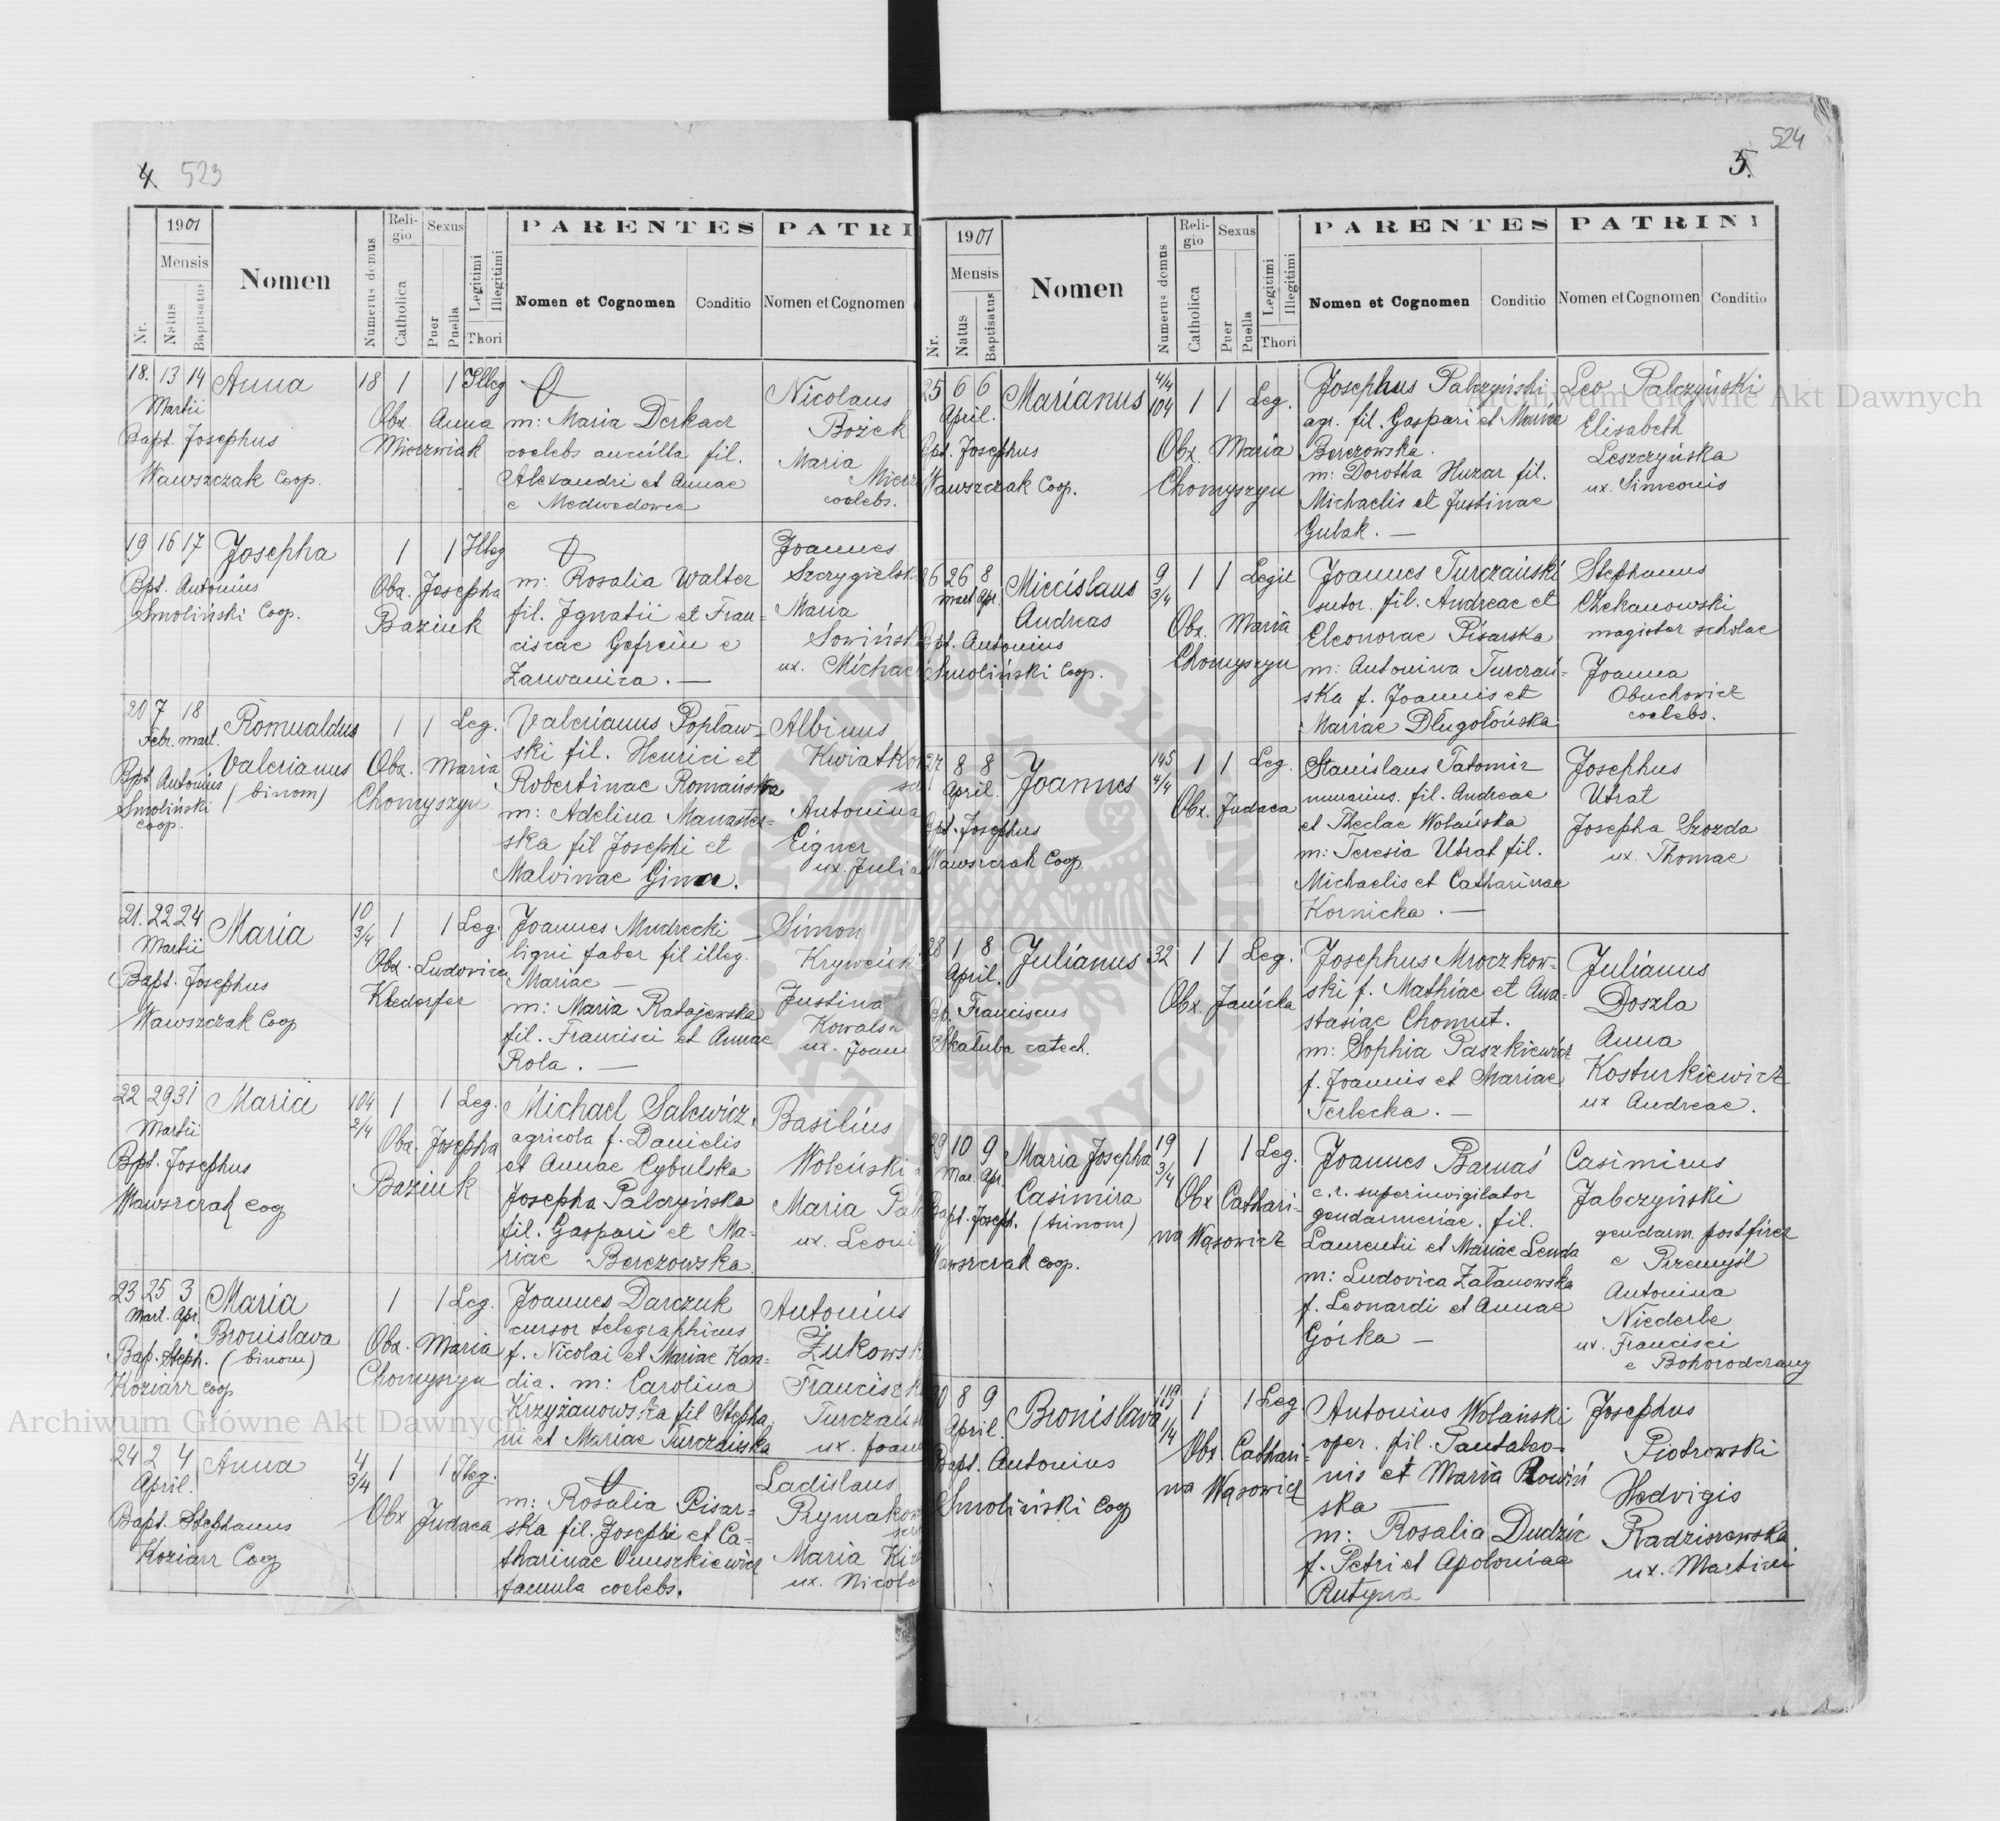 4 523
1901
Mensis
Nr.
Natus
Baptisatus
Nomen
Numerus domus
Religio
Catholica
Sexus
Puer
Puella
Legitimi
Illegitimi
Thori
PARENTES
Nomen et Cognomen
Conditio
PATRI
Nomen et Cognomen
18. 13 14 Anna 18 1 1 Illeg
Martii
Bapt. Josephus
Wawszczak Coop.
Obx. Anna
Mierzwiak
m: Maria Derkacz
coelebs ancilla fil.
Alexandri et Annae
e Medwedowce
Nicolaus
Bożek
Maria
Mierz
coelebs.
19 16 17 Josepha 1 1 Illeg
Bpt. Antonius
Smoliński Coop.
Obx. Josepha
Baziuk
m: Rosalia Walter
fil. Ignatii et Fran=
ciscae Gefrein e
Zarwanica. —
Joannes
Szczygielsk
Maria
Sowińsk
ux. Michae
20 7 18 Romualdus 1 1 Leg.
Febr. mart.
Valerianus
(binom)
Bpt. Antonius
Smoliński
coop.
Obx. Maria
Chomyszyn
Valerianus Popław=
ski fil. Henrici et
Robertinae Romańska
m: Adelina Manaster=
ska fil Josephi et
Malvinae
Albinus
Kwiatkow
Antonina
Eigner
ux. Julia
21. 22 24 Maria 10 3/4 1 1 Leg.
Martii
Bapt. Josephus
Wawszczak Coop
Obx. Ludovica
Joannes Mudrecki —
ligni faber fil illeg.
Mariae —
m: Maria Ratajewska
fil. Francisci et Annae
Rola. —
Simon
Justina
Kowals
ux. Joan
22 29 31 Maria 104 2/4 1 1 Leg.
Martii
Bpt. Josephus
Wawszczak Coop
Obx. Josepha
Baziuk
Michael Salewicz,
agricola f. Danielis
et Annae Cybulska
Josepha Palczyńska
fil. Gaspari et Ma=
riae Berezowska.
Basilius
Woleński
Maria Pa
ux. Leoni
23 25 3 Maria 1 1 Leg.
Mart. Apr.
Bronislava
(binom)
Bap. Steph.
Koziarz coop
Obx. Maria
Chomyszyn
Joannes Darczuk
cursor telegraphicus
f. Nicolai et Mariae Kan=
dia. m: Carolina
Krzyżanowska fil Stepha
ni et Mariae Turczańska
Antonius
Żukowsk
Francisz
Turczańs
ux. Joan
24 2 4 Anna 4 3/4 1 1 Illeg.
April.
Bapt. Stephanus
Koziarz Coop
Obx Judaea
m: Rosalia Pisar=
ska fil. Josephi et Ca=
tharinae Onuszkiewicz
famula coelebs.
Ladislaus
Rymakow
Maria
ux. Nicola
524
5.
1901
Mensis
Nr.
Natus
Baptisatus
Nomen
Numerus domus
Religio
Catholica
Sexus
Puer
Puella
Legitimi
Illegitimi
Thori
PARENTES
Nomen et Cognomen
Conditio
PATRINI
Nomen et Cognomen
Conditio
25 6 6 Marianus 4/4 104 1 1 Leg.
April.
Bpt. Josephus
Wawszczak Coop.
Obx. Maria
Chomyszyn
Josephus Palczyński
agr. fil. Gaspari et Mariae
Berezowska.
m: Dorotha Huzar fil.
Michaelis et Justinae
Gulak. —
Leo Palczyński
Elisabeth
Leszczyńska
ux. Simeonis
26 26 8 Miecislaus 9 3/4 1 1 Legit
Mart. Apr.
Andreas
Bpt. Antonius
Smoliński Coop.
Obx. Maria
Chomyszyn
Joannes Turczański
sutor. fil. Andreae et
Eleonorae Pisarska
m: Antonina Turczań=
ska f. Joannis et
Mariae Długołońska
Stephanus
Chekanowski
magister scholae
Joanna
Obuchowicz
coelebs.
27 8 8 Joannes 145 4/4 1 1 Leg.
April.
Bpt. Josephus
Wawszczak Coop
Obx. Judaea
Stanislaus Tatomir
murarius. fil. Andreae
et Theclae Wolańska
m: Teresia Utrat fil.
Michaelis et Catharinae
Kornicka. —
Josephus
Utrat
Josepha Szozda
ux. Thomae
28 1 8 Julianus 32 1 1 Leg.
April.
Bp. Franciscus
Skałuba catech.
Obx. Janicka
Josephus Mroczkow=
ski f. Mathiae et Ana=
stasiae Chomut.
m: Sophia Paszkiewicz
f. Joannis et Mariae
Terlecka. —
Julianus
Doszla
Anna
Kosturkiewicz
ux Andreae.
29 10 9 Maria Josepha 19 3/4 1 1 Leg.
Mar. Apr.
Casimira
(trinom)
Bapt. Joseph.
Wawszczak Coop.
Obx Cathari=
na Wąsowicz
Joannes Barnaś
c.r. supervigilator
gendarmeriae. fil.
Laurentii et Mariae Lenda
m: Ludovica Załanowska
f. Leonardi et Annae
Górka —
Casimirus
Jabczyński
gendarm. postfirer
e Przemyśl
Antonina
Niederle
ux. Francisci
e Bohorodczany
30 8 9 Bronislava 119 1/4 1 1 Leg.
April.
Bapt. Antonius
Smoliński Coop
Obx. Cathari=
na Wąsowicz
Antonius Wolański
oper. fil. Pantaleo=
nis et Maria Rowiń
ska —
m: Rosalia Dudzic
f. Petri et Apoloniae
Rutyna
Josephus
Piotrowski
Hedvigis
Radziszewska
ux. Martini
Archiwum Główne Akt Dawnych
Archiwum Główne Akt Dawnych